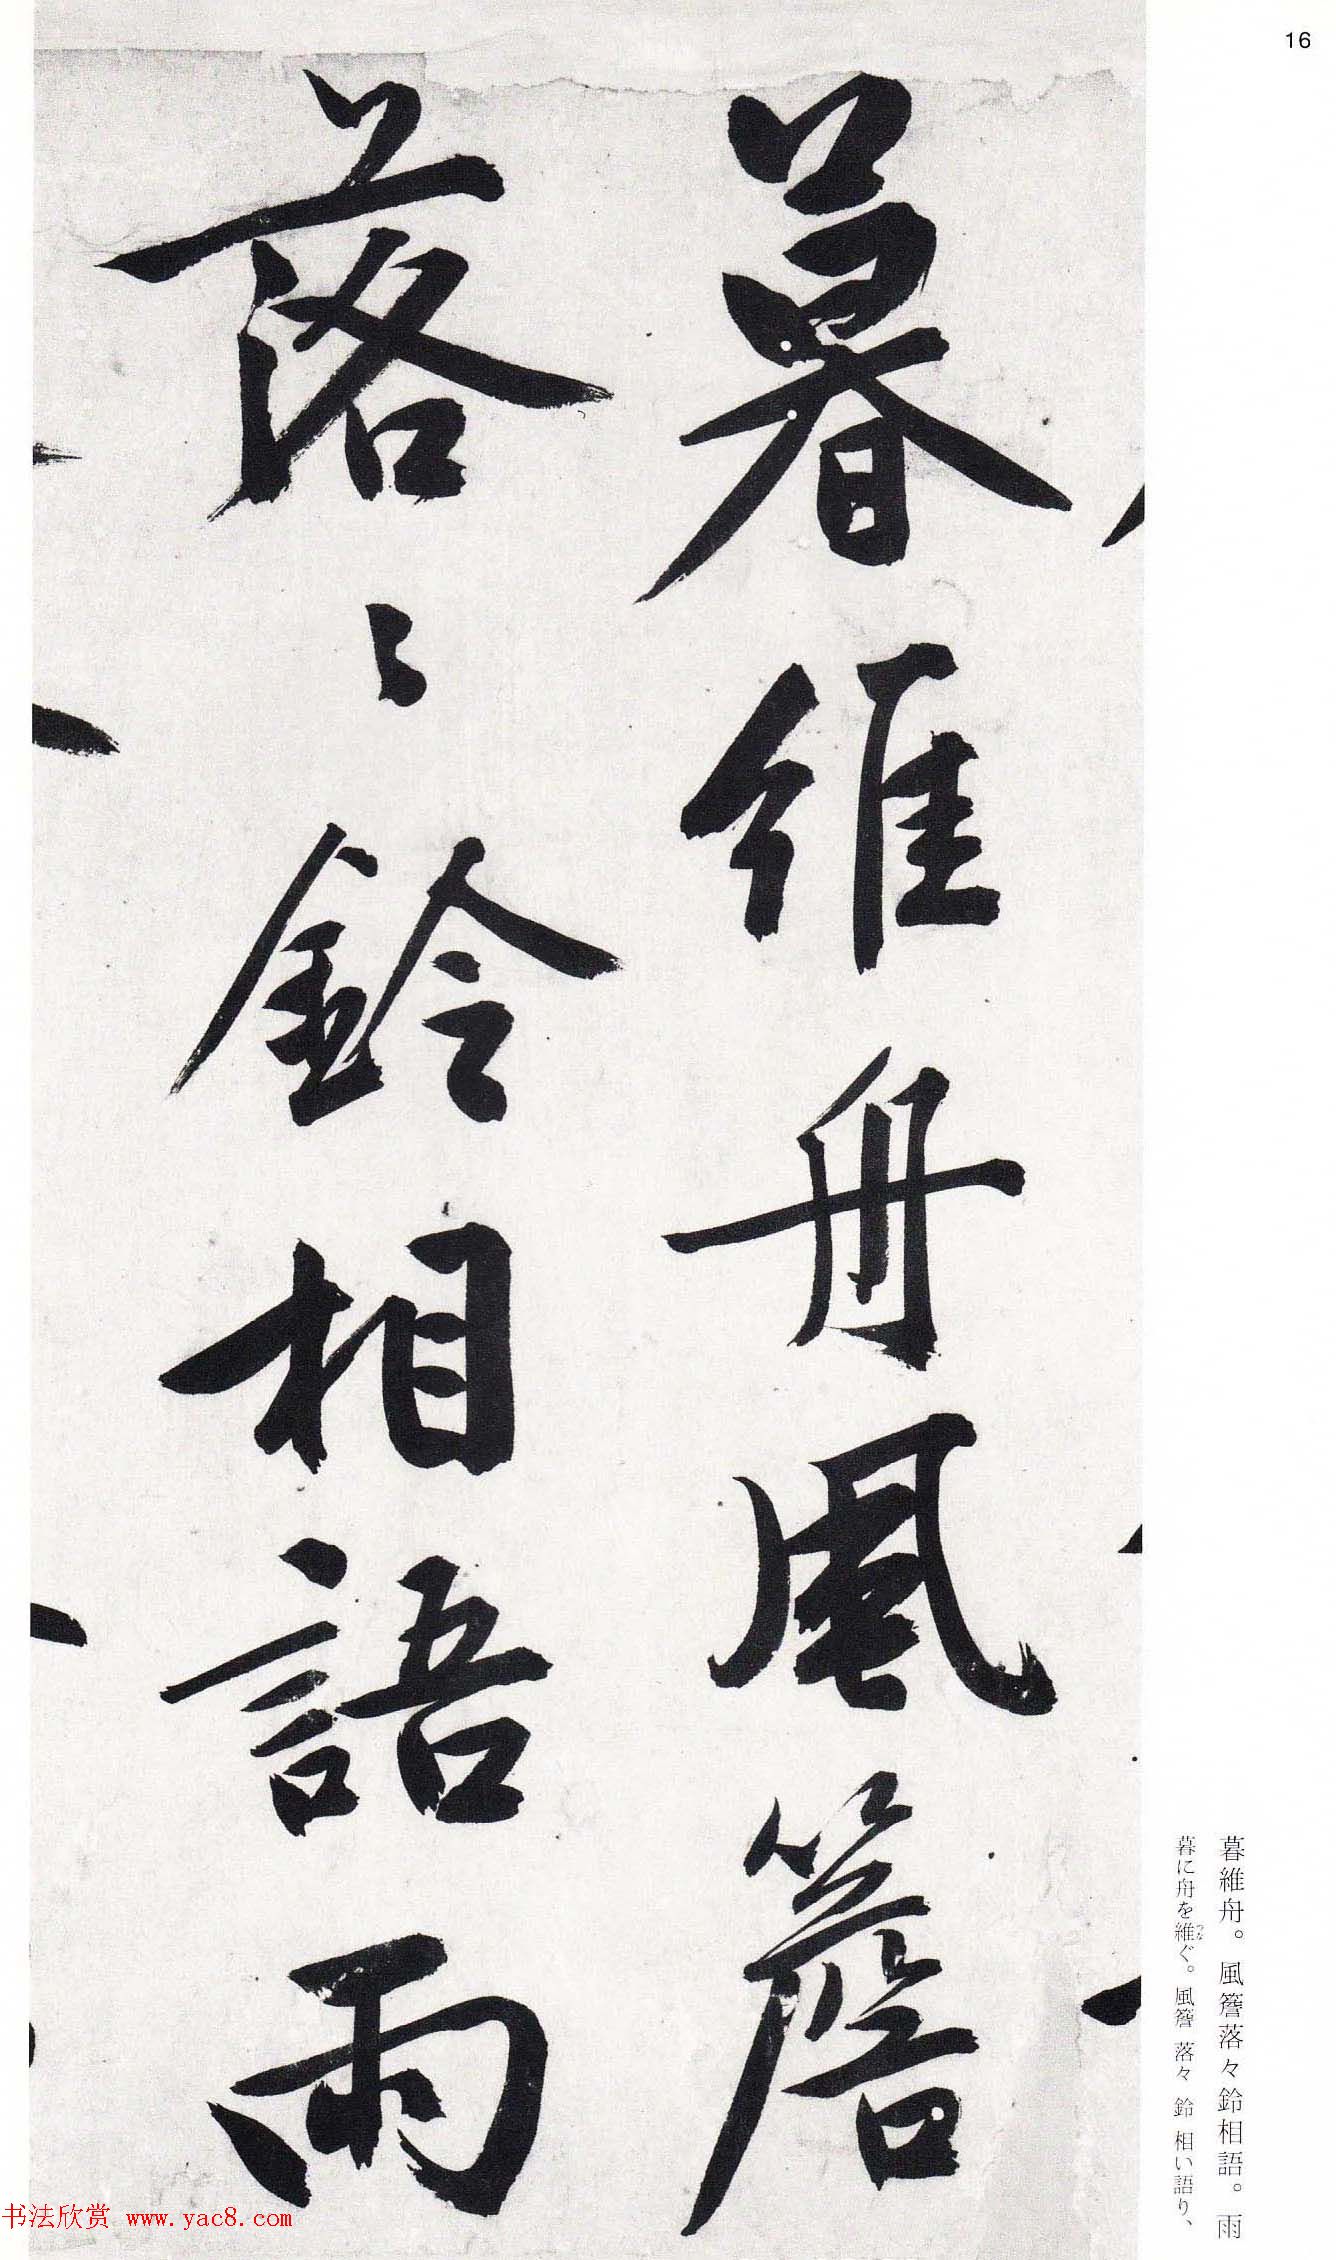 16
暮維舟風簷
落〻鈴相語雨
暮維舟。風簷落々鈴相語。雨
暮に舟を維ぐ。風簷 落々 鈴 相い語り、
つな
书法欣赏 www.yac8.com